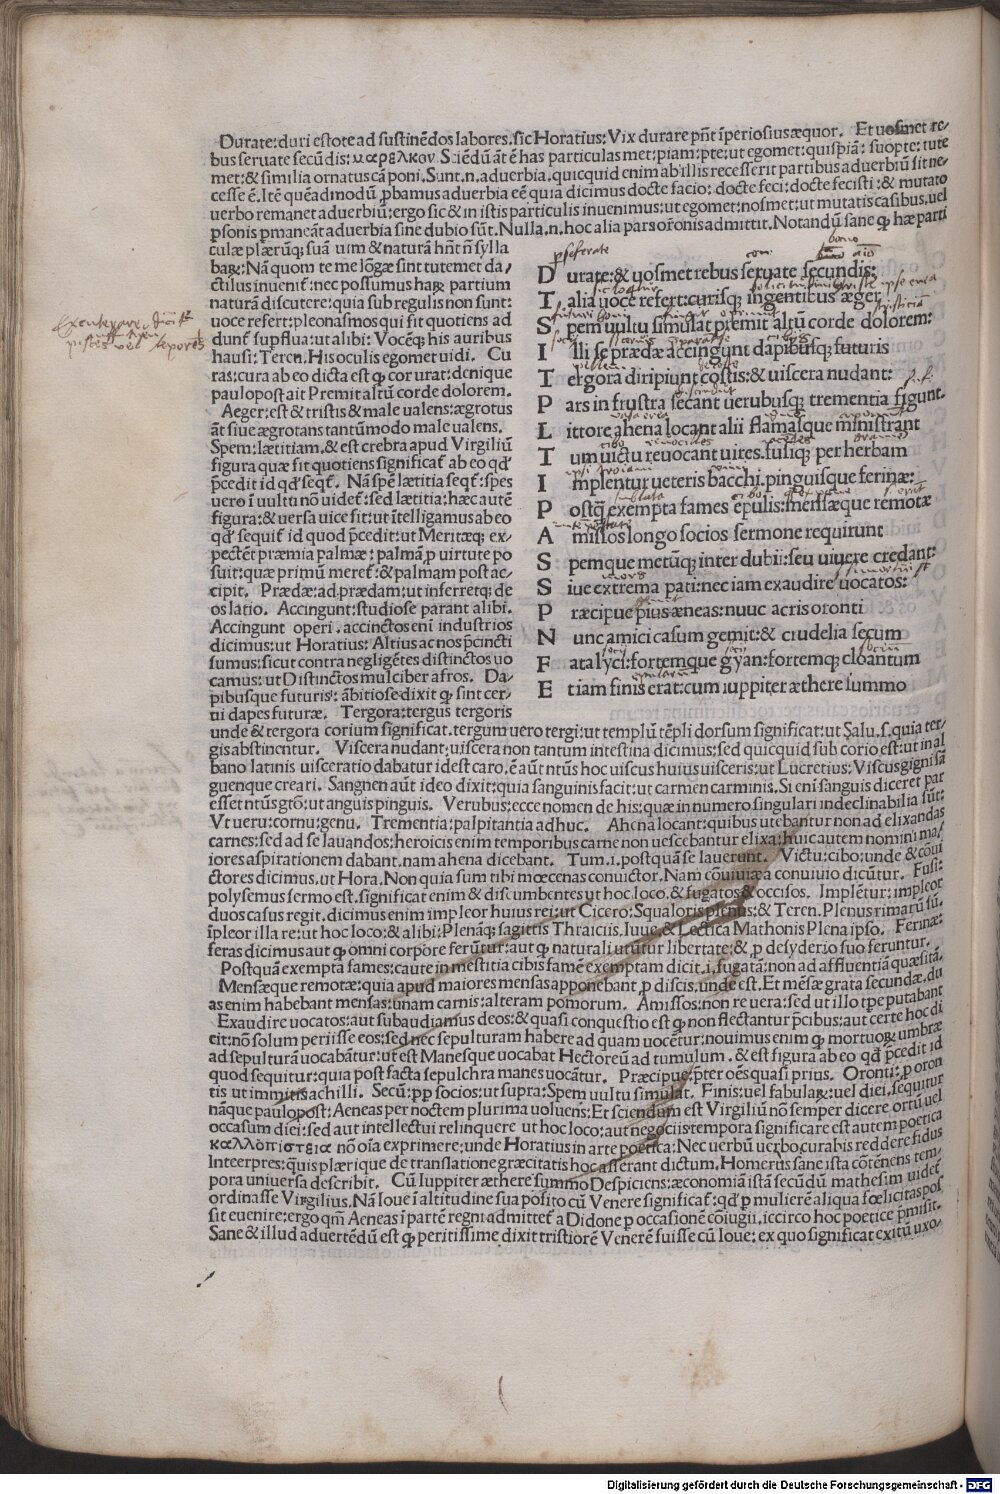 Durate:duri estote ad sustinēdos labores. sic Horatius: Vix durare pn̄t īperiosius æquor. Et uosmet re-
bus seruate secūdis: μαρελκον Sciēdū āt ē has particulas met:piam:pte: ut egomet: quispiā: suopte: tute
met:& similia ornatus cā poni. Sunt.n. aduerbia. quicquid enim ab illis recesserit partibus aduerbiū sit ne-
cesse ē. Itē quēadmodū ꝓbamus aduerbia eē quia dicimus docte facio: docte feci: docte fecisti: & mutato
uerbo remanet aduerbiū: ergo sic & in istis particulis inuenimus: ut egomet: nosmet: ut mutatis casibus. uel
ꝑsonis ꝑmaneāt aduerbia sine dubio sūt. Nulla.n. hoc alia pars or̄onis admittit. Notandū sane ꝙ hæ parti
culæ plærūq; suā uim & naturā hn̄t ī sylla
baꝝ: Nā quom te me lōgæ sint tutemet da/
ctilus inuenit̄: nec possumus haꝝ partium
naturā discutere: quia sub regulis non sunt:
uoce refert: pleonasmos qui fit quotiens ad
dunt̄ supflua: ut alibi: Vocēq; his auribus
hausi: Teren. His oculis egomet uidi. Cu
ras: cura ab eo dicta est ꝙ cor urat: denique
paulopost ait Premit altū corde dolorem.
Aeger: est & tristis & male ualens: ægrotus
āt siue ægrotans tantūmodo male ualens.
Spem: lætitiam. & est crebra apud Virgiliū
figura quæ fit quotiens significat̄ ab eo qd'
p̄cedit id qd' seqt̄. Nā spē lætitia seqt̄: spes
uero ī uultu nō uidet̄: sed lætitia: hæc autē
figura: & uersa uice fit: ut ītelligamus ab eo
qd' sequit̄ id quod p̄cedit: ut Meritæq; ex-
pectēt præmia palmæ: palmā ꝓ uirtute po
suit: quæ primū meret̄: & palmam post ac-
cipit. Prædæ: ad prædam: ut inferretq; de
os latio. Accingunt: studiose parant alibi.
Accingunt operi. accinctos enī industrios
dicimus: ut Horatius: Altius ac nos p̄cincti
sumus: sicut contra negligētes distinctos uo
camus: ut Distinctos mulciber afros. Da-
pibusque futuris: ābitiose dixit ꝙ sint cer-
ui dapes futuræ. Tergora: tergus tergoris
D urate: & uosmet rebus seruate secundis:
T alia uoce refert: curisq; ingentibus æger
S pem uultu simulat premit altū corde dolorem:
I lli se prædæ accingunt dapibusq; futuris
T ergora diripiunt costis: & uiscera nudant:
P ars in frustra secant uerubusq; trementia figunt.
L ittore ahena locant alii flāmasque ministrant
T um uictu reuocant uires. fusiq; per herbam
I mplentur ueteris bacchi. pinguisque ferinæ:
P ostq̄ exempta fames epulis: mensæque remotæ
A missos longo socios sermone requirunt
S pemque metūq; inter dubii: seu uiuere credant:
S iue extrema pati: nec iam exaudire uocatos:
P ræcipue pius æneas: nuuc acris oronti
N unc amici casum gemit: & crudelia secum
F ata lyci: fortemque gyan: fortemq; cloantum
E tiam finis erat: cum iuppiter æthere summo
unde & tergora corium significat. tergum uero tergi: ut templū tēpli dorsum significat: ut Salu.s. quia ter-
gis abstinentur. Viscera nudant: uiscera non tantum intestina dicimus: sed quicquid sub corio est: ut in al
bano latinis uisceratio dabatur idest caro. ē aūt ntūs hoc uiscus huius uisceris: ut Lucretius: Viscus gigni sā
guenque creari. Sanguen aūt ideo dixit: quia sanguinis facit: ut carmen carminis. Si eni sanguis diceret par
esset ntūs gtō: ut anguis pinguis. Verubus: ecce nomen de his: quæ in numero singulari indeclinabilia sūt:
Vt ueru: cornu: genu. Trementia: palpitantia adhuc. Ahena locant: quibus utebantur non ad elixandas
carnes: sed ad se lauandos: heroicis enim temporibus carne non uescebantur elixa: huic autem nomini ma/
iores aspirationem dabant. nam ahena dicebant. Tum.i. postquā se lauerunt. Victu: cibo: unde & cōui
ctores dicimus. ut Hora. Non quia sum tibi mœcenas conuictor. Nam cōuiuia a conuiuio dicūtur. Fusi:
polysemus sermo est. significat enim & discumbentes ut hoc loco. & fugatos & occisos. Implētur: impleor
duos casus regit. dicimus enim impleor huius rei: ut Cicero: Squaloris plenus: & Teren. Plenus rimarū sū.
īpleor illa re: ut hoc loco: & alibi: Plenāq; sagittis Thraiciis. Iuue. & Lectica Mathonis Plena ipso. Ferinæ:
feras dicimus aut ꝙ omni corpore ferūtur: aut ꝙ naturali utūtur libertate: & ꝓ desyderio suo feruntur.
Postquā exempta fames: caute in mestitia cibis famē exemptam dicit.i. fugatā: non ad affluentiā quæsitā.
Mensæque remotæ: quia apud maiores mensas apponebant ꝓ discis. unde est. Et mēsæ grata secundæ. du
as enim habebant mensas: unam carnis: alteram pomorum. Amissos: non re uera: sed ut illo tp̄e putabant
Exaudire uocatos: aut subaudiamus deos: & quasi conquestio est ꝙ non flectantur p̄cibus: aut certe hoc di
cit: nō solum periisse eos: sed nec sepulturam habere ad quam uocētur: nouimus enim ꝙ mortuoꝝ umbræ
ad sepulturā uocabātur: ut est Manesque uocabat Hectoreū ad tumulum. & est figura ab eo qd p̄cedit id
quod sequitur: quia post facta sepulchra manes uocātur. Præcipue: p̄ter oēs quasi prius. Oronti: ꝓ oron
tis ut immitis achilli. Secū: pp socios: ut supra: Spem uultu simulat. Finis: uel fabulaꝝ: uel diei. sequitur
nāque paulopost: Aeneas per noctem plurima uoluens: Et sciendum est Virgiliū nō semper dicere ortū uel
occasum diei: sed aut intellectui relinquere ut hoc loco: aut negociis tempora significare est autem poetica
καλλοπιστεια nō oīa exprimere: unde Horatius in arte poetica: Nec uerbū uerbo curabis reddere fidus
Inteerpres: q̄uis plærique de translatione græcitatis hoc asserant dictum. Homerus sane ista cōtēnens tem-
pora uniuersa describit. Cū Iuppiter æthere summo Despiciens: æconomiā istā secūdū mathesim uidet̄
ordinasse Virgilius. Nā Ioue ī altitudine sua posito cū Venere significat̄: qd' ꝑ mulierē aliqua fœlicitas pos
sit euenire: ergo qm̄ Aeneas ī partē regni admittet̄ a Didone ꝑ occasionē cōiugii. iccirco hoc poetice p̄misit.
Sane & illud aduertēdū est ꝙ peritissime dixit tristiorē Venerē fuisse cū Ioue: ex quo significat exitū uxo/
Digitalisierung gefördert durch die Deutsche Forschungsgemeinschaft - DFG